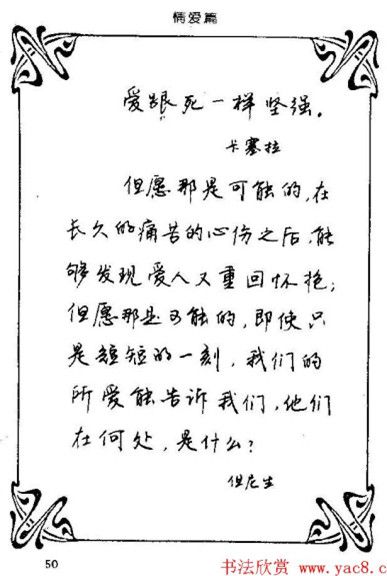 情爱篇
爱跟死一样坚强。
卡塞拉
但愿那是可能的,在
长久的痛苦的心伤之后,能
够发现爱人又重回怀抱;
但愿那是可能的,即使只
是短短的一刻,我们的
所爱能告诉我们,他们
在何处,是什么?
但尼生
50
书法欣赏 www.yac8.c